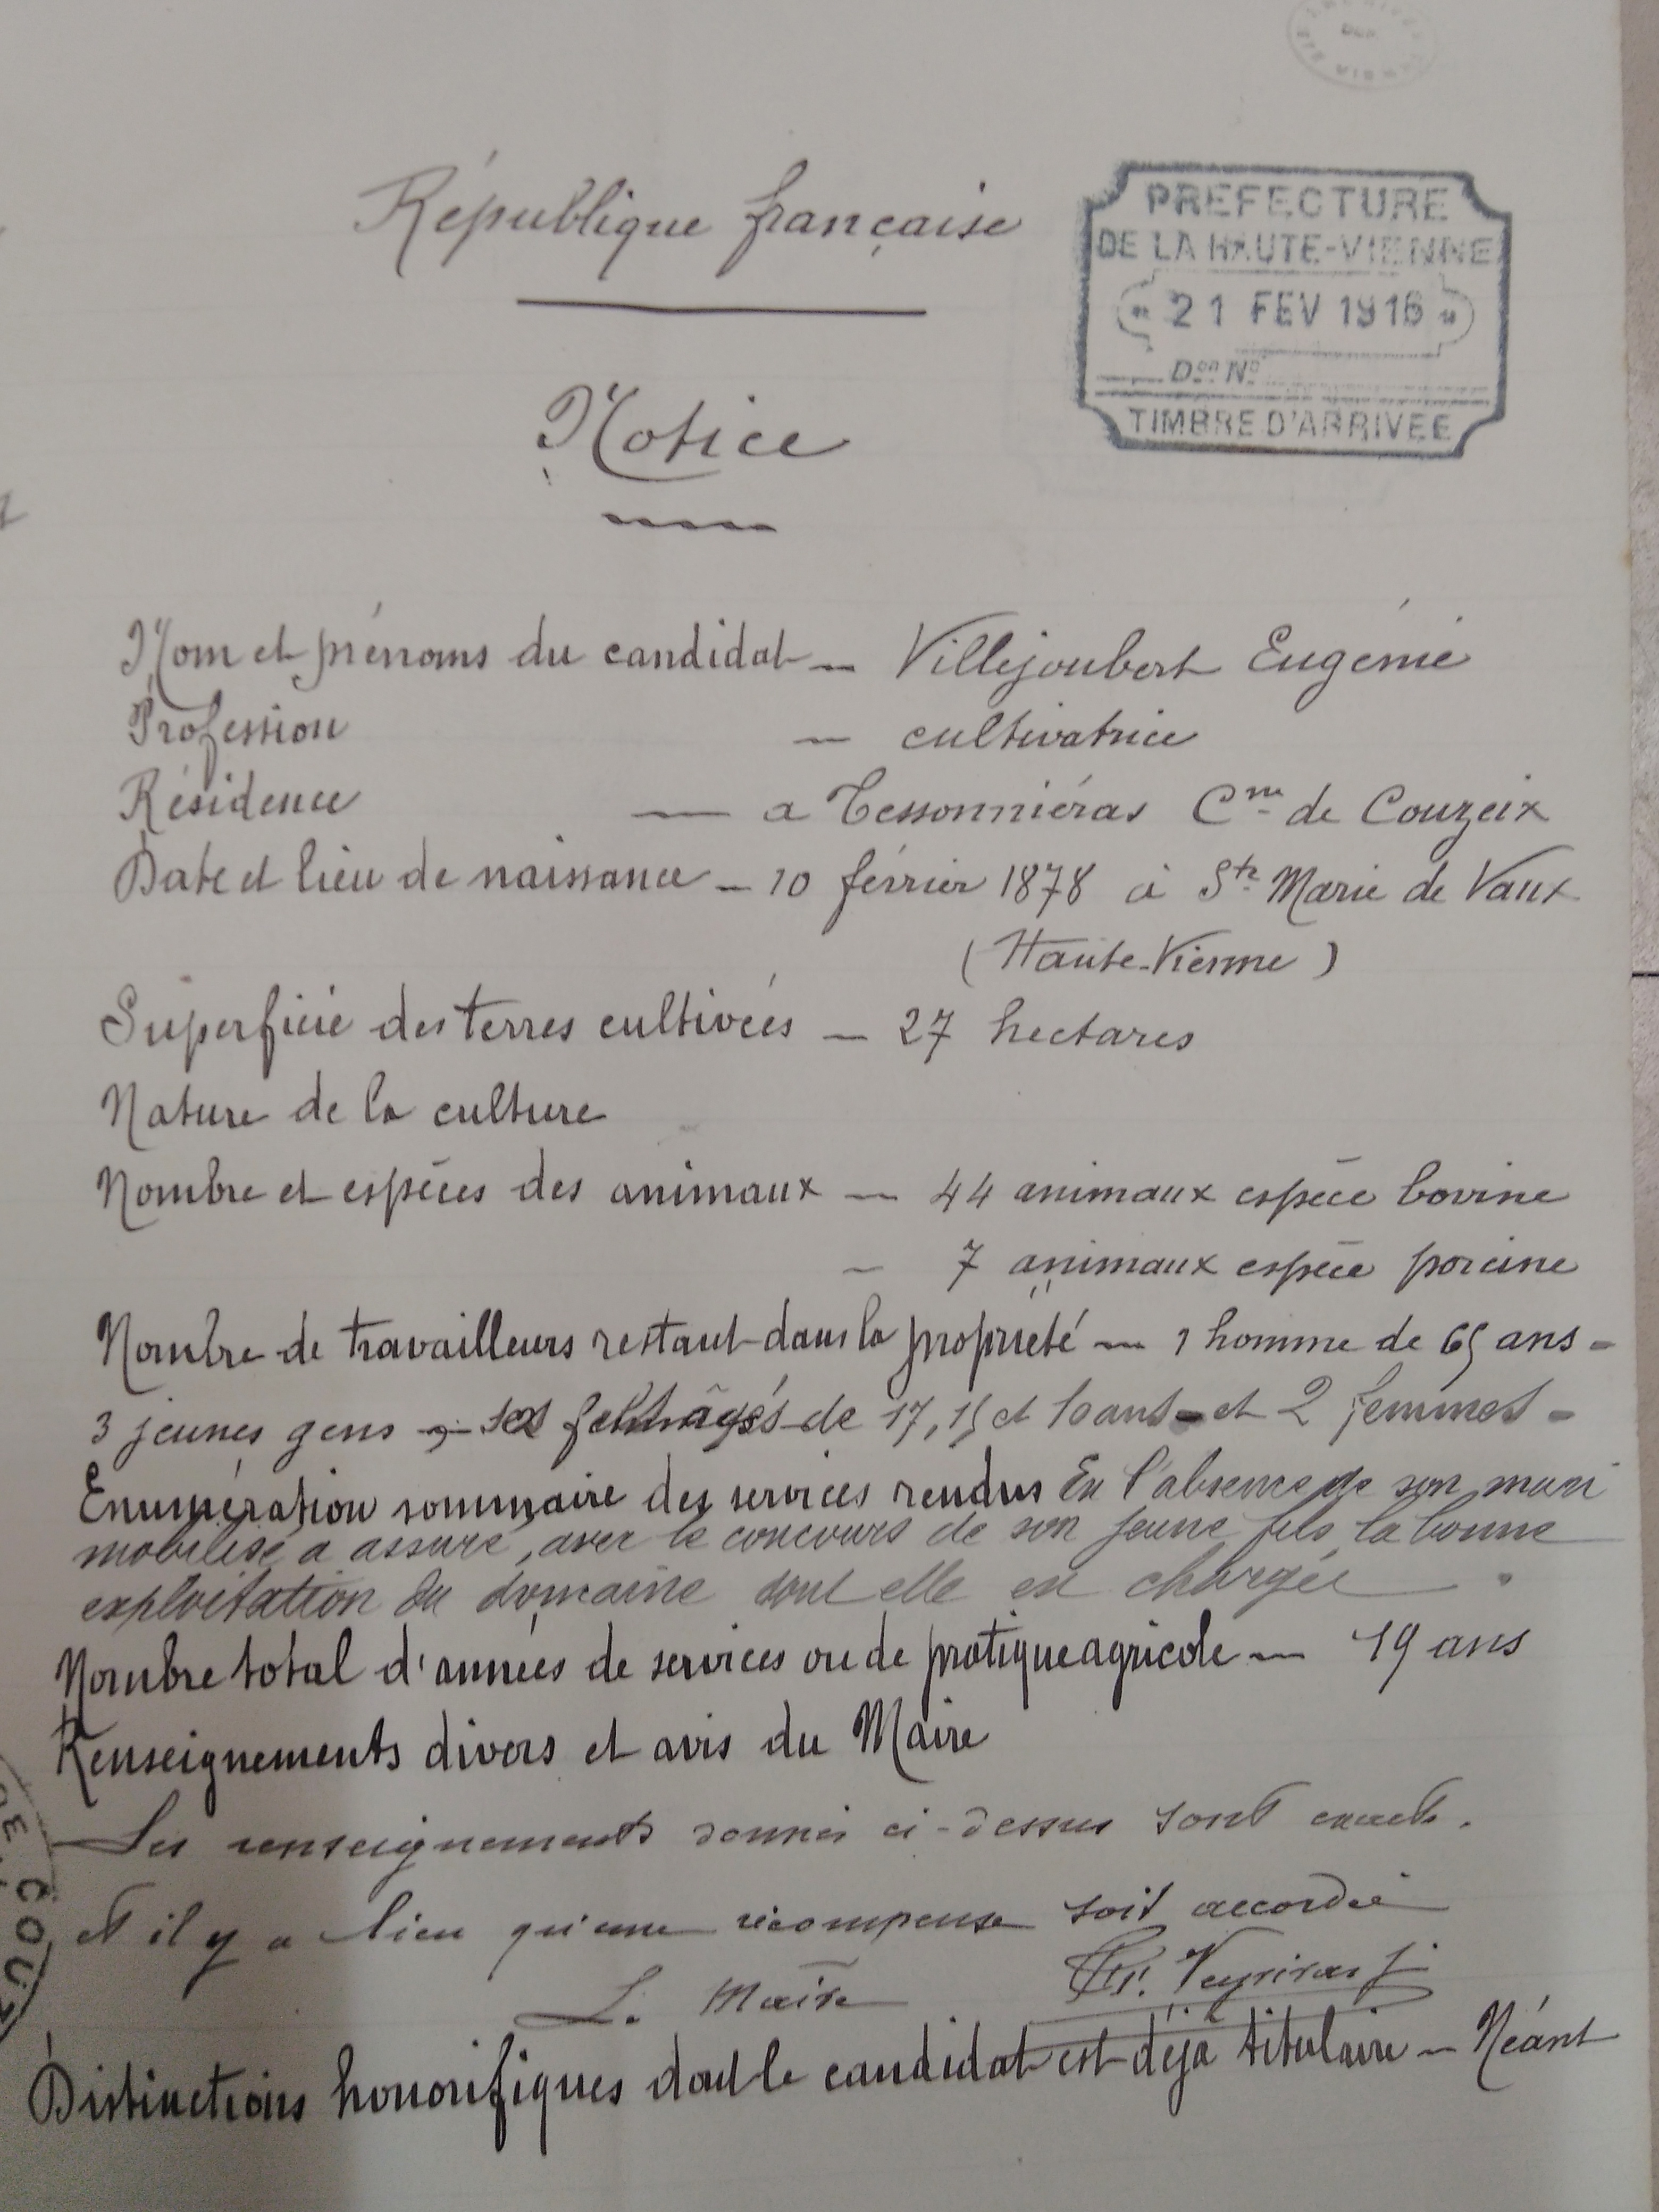 République française
PREFECTURE
DE LA HAUTE-VIENNE
21 FEV 1916
Don No
TIMBRE D'ARRIVÉE
Notice
Nom et prénoms du candidat — Villejoubert Eugénie
Profession — cultivatrice
Résidence — a Tessonniéras Cne de Couzeix
Date et lieu de naissance — 10 février 1878 à Ste Marie de Vaux
(Haute-Vienne)
Superficie des terres cultivées — 27 hectares
Nature de la culture
Nombre et espèces des animaux — 44 animaux espèce bovine
— 7 animaux espèce porcine
Nombre de travailleurs restant dans la propriété — 1 homme de 65 ans -
3 jeunes gens âgés de 17, 15 et 10 ans - et 2 femmes -
Enumération sommaire des services rendus En l'absence de son mari
mobilisé a assuré, avec le concours de son jeune fils la bonne
exploitation du domaine dont elle est chargée.
Nombre total d'années de services ou de pratique agricole — 19 ans
Renseignements divers et avis du Maire
Les renseignements donnés ci-dessus sont exacts.
et il y a lieu qu'une récompense soit accordée
Le Maire
Distinctions honorifiques dont le candidat est déjà titulaire — Néant
COUZ